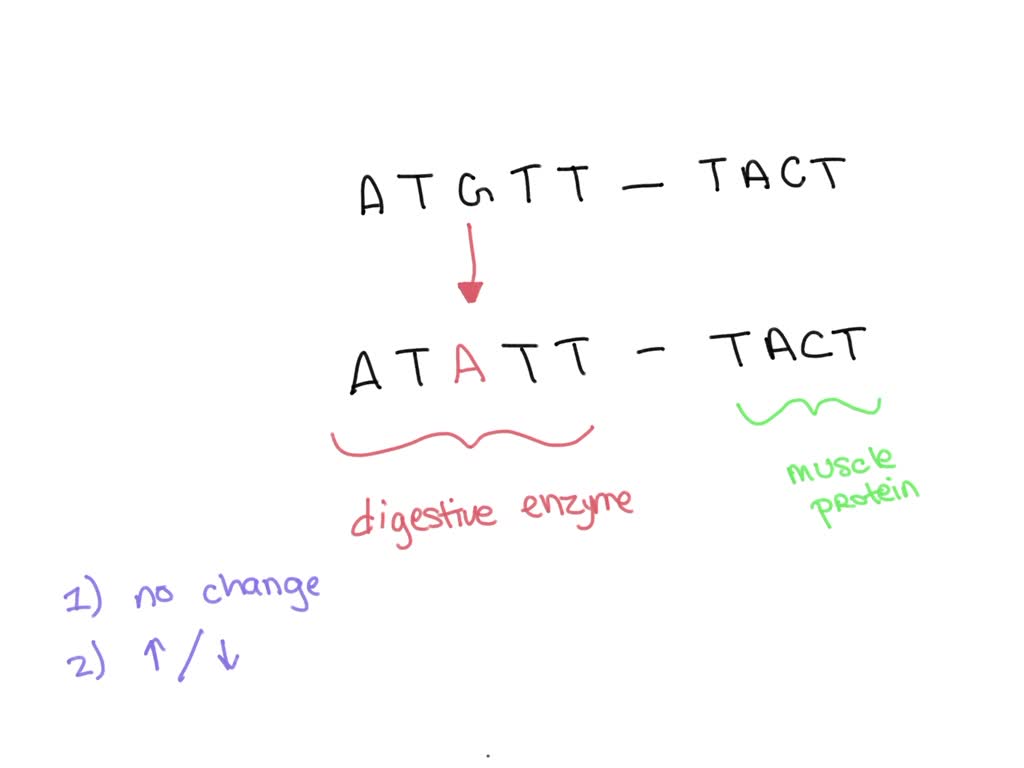 ATGTT – TACT
ATATT – TACT
digestive enzyme
muscle
protein
1) no change
2) ↑/↓